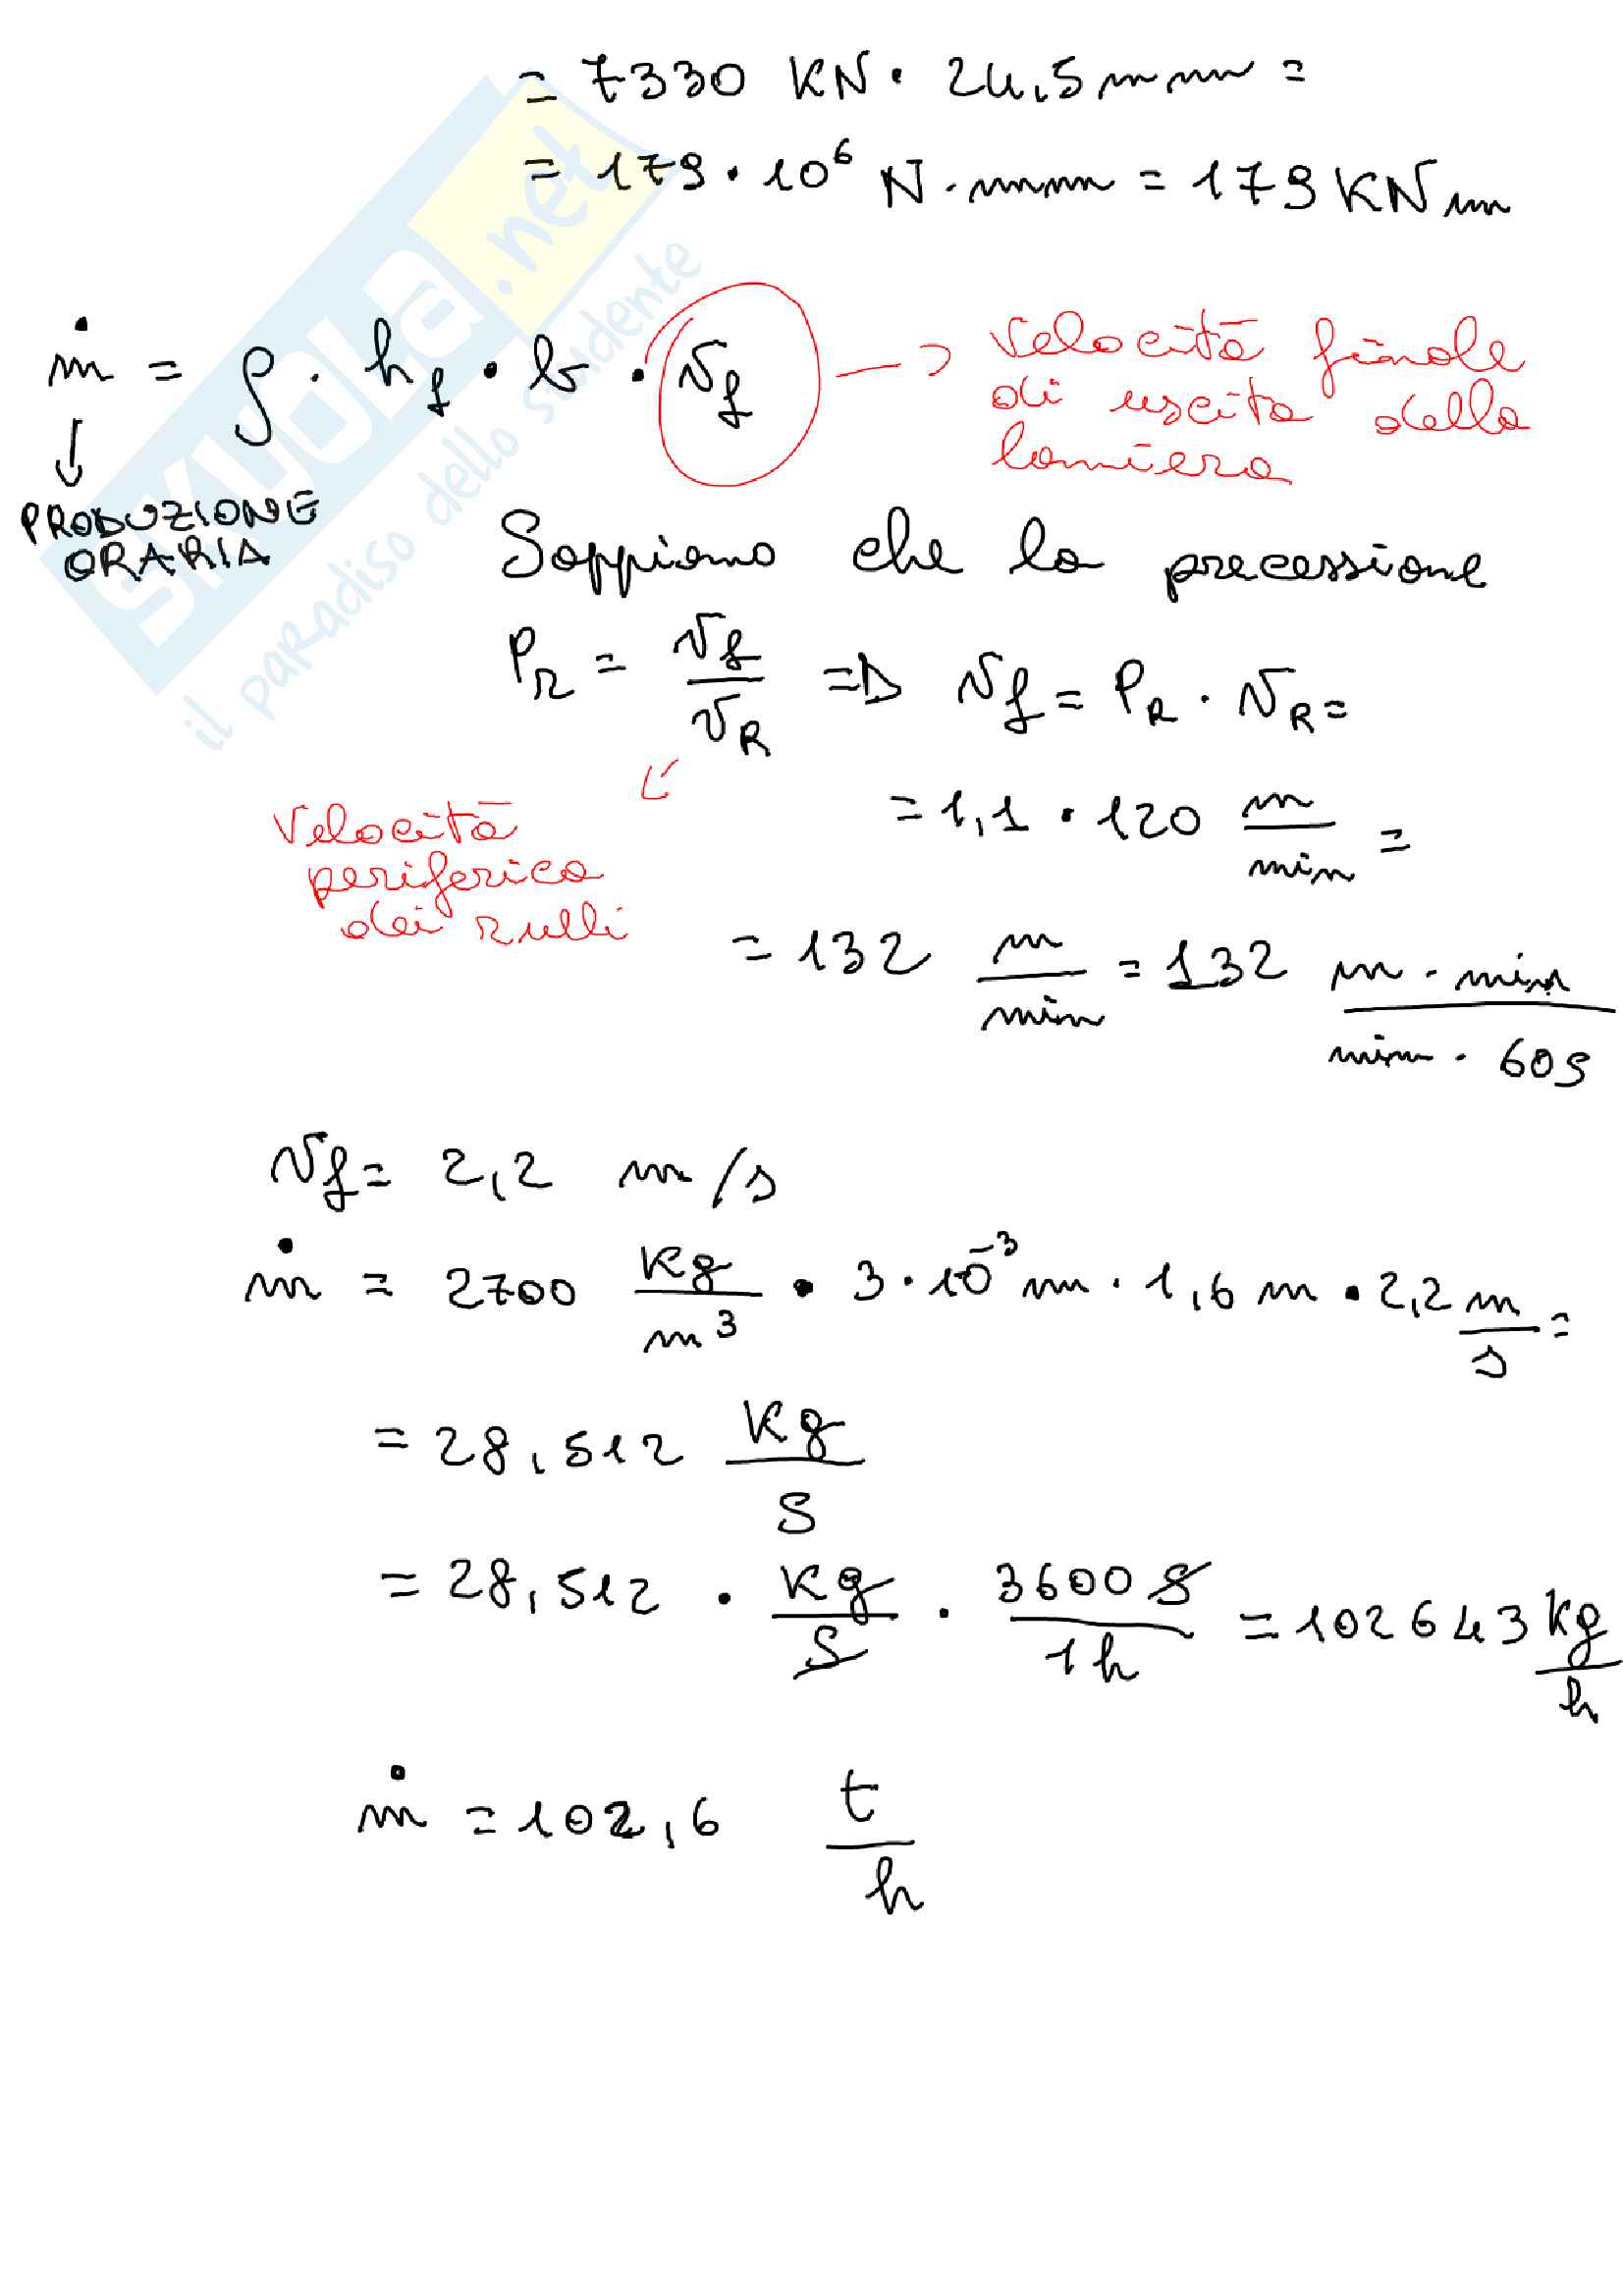 = 7330 KN · 24,5 mm =
= 179 · 10⁶ N · mm = 179 KN m
ṁ = ρ · h_f · b · v_f → Velocità finale
di uscita della
lamiera
↓
PRODUZIONE
ORARIA
Sappiamo che la precessione
P_R = v_f / v_R => v_f = P_R · v_R =
Velocità
periferica
dei rulli
= 1,1 · 120 m/min =
= 132 m/min = 132 m · min / min · 60s
v_f = 2,2 m/s
ṁ = 2700 kg/m³ · 3 · 10⁻³ m · 1,6 m · 2,2 m/s =
= 28,512 kg/s
= 28,512 · kg/s · 3600 s/1h = 102643 kg/h
ṁ = 102,6 t/h
SKUOLA.net
il paradiso dello studente